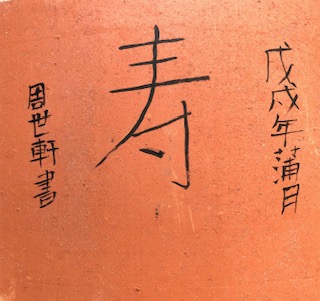 戊戌年蒲月
寿
周世軒書